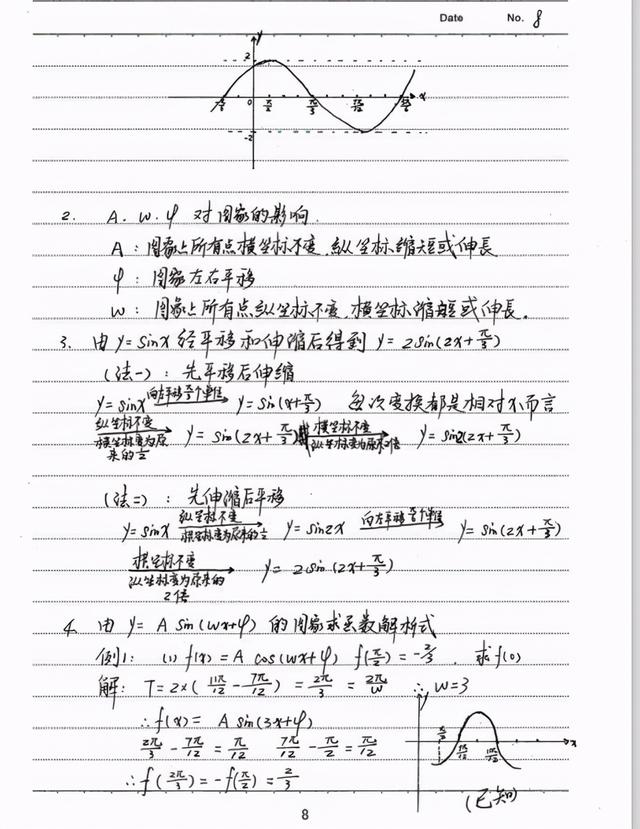 Date No. 8
y
2
0 π/2 x
-2
2. A. w. φ 对图象的影响.
A: 图象上所有点横坐标不变,纵坐标缩短或伸长
φ: 图象左右平移
w: 图象上所有点纵坐标不变,横坐标缩短或伸长.
3. 由 y=sinx 经平移和伸缩后得到 y=2sin(2x+π/3)
(法一): 先平移后伸缩
y=sinx 向左平移 个单位 y=sin(x+π/3) 每次变换都是相对x而言
纵坐标不变 横坐标变为原来的1/2 y=sin(2x+π/3) 横坐标不变 纵坐标变为原来2倍 y=sin2(2x+π/3)
(法二): 先伸缩后平移
y=sinx 纵坐标不变 横坐标变为原来的1/2 y=sin2x 向左平移 个单位 y=sin(2x+π/3)
横坐标不变 纵坐标变为原来的2倍 y=2sin(2x+π/3)
4. 由 y=Asin(wx+φ) 的图象求函数解析式
例1: (1) f(x)=A cos(wx+φ) f(π/2)=-2/3 . 求f(0)
解: T=2×(11π/12-7π/12)=2π/3=2π/w ∴w=3
∴f(x)=A sin(3x+φ)
2π/3-7π/12=π/12 7π/12-π/2=π/12
∴f(2π/3)=-f(π/2)=2/3
y
x
(已知)
8